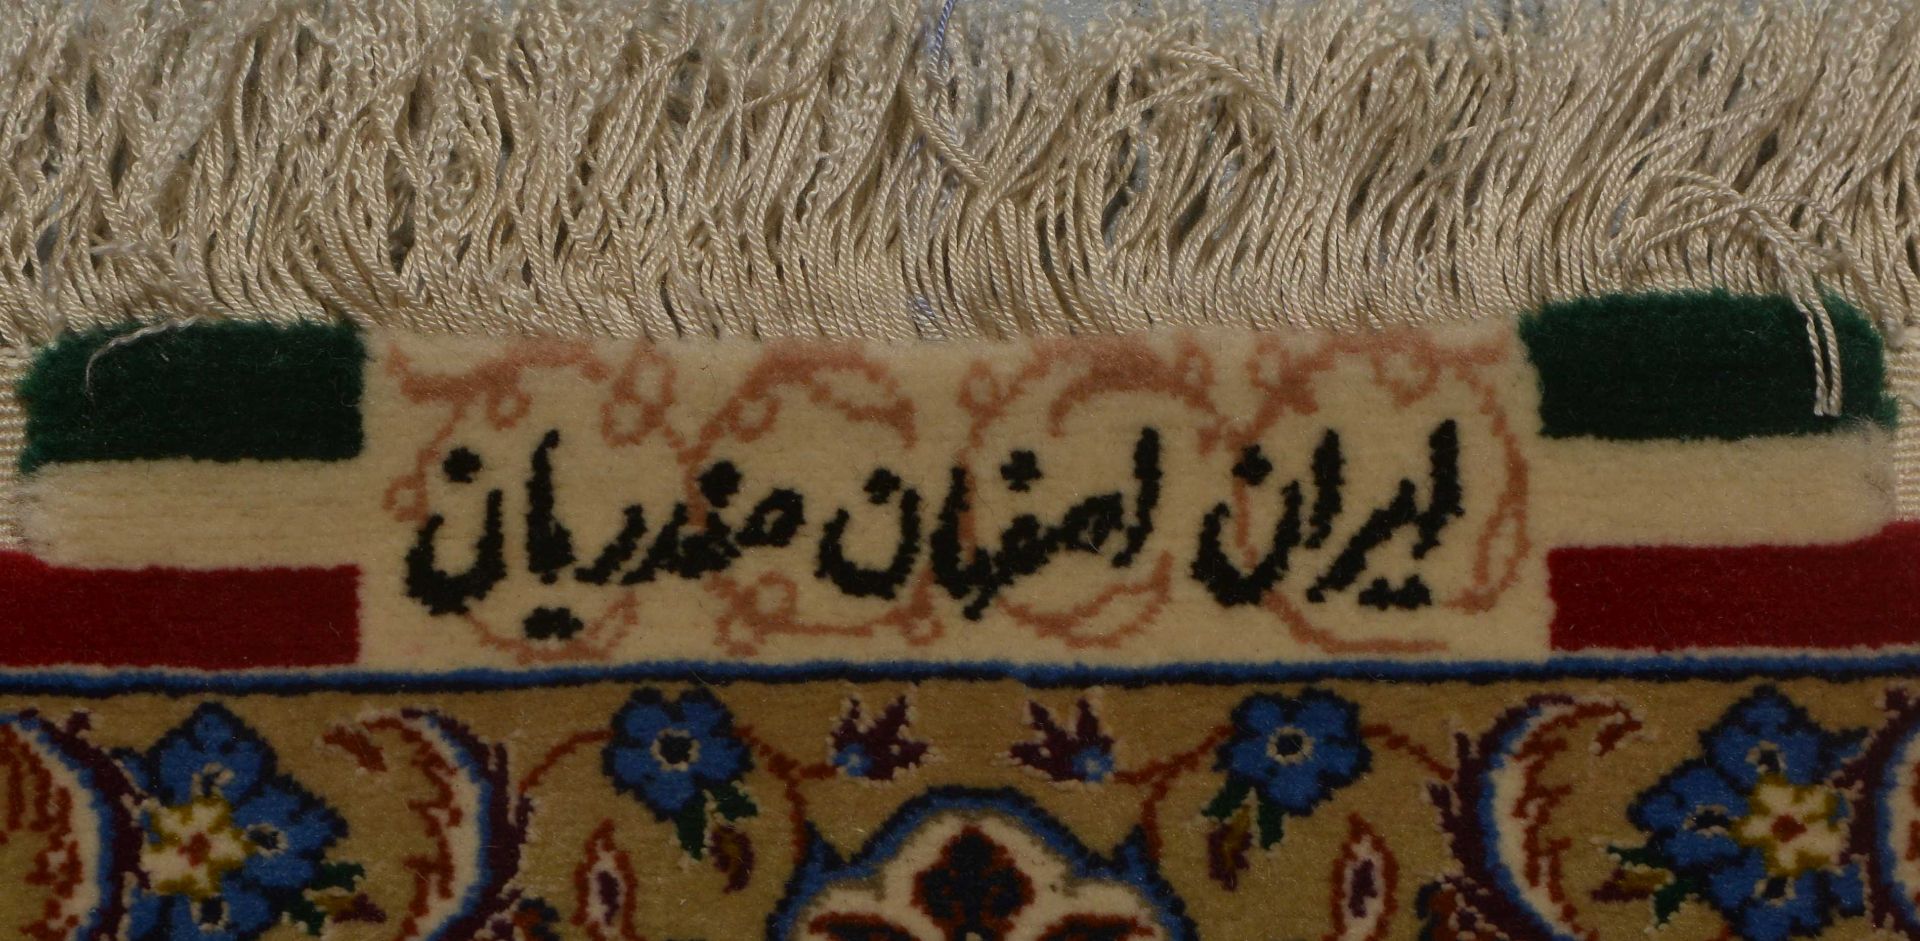 ایران اصفهان صفدریان